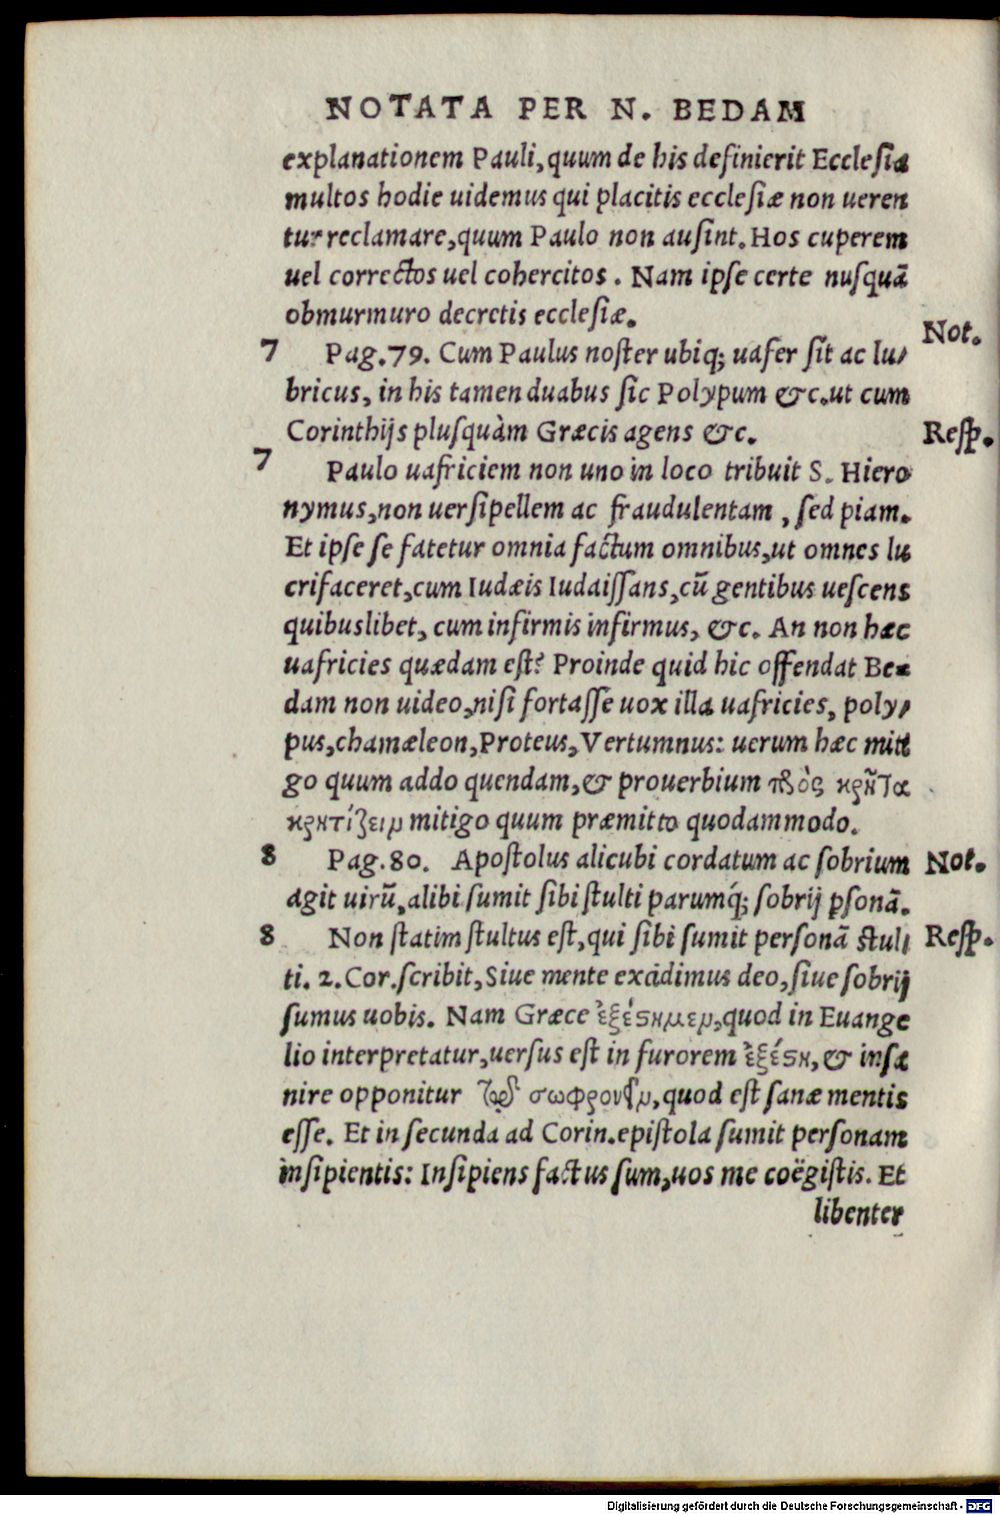 NOTATA PER N. BEDAM
explanationem Pauli, quum de his definierit Ecclesia
multos hodie uidemus qui placitis ecclesiæ non ueren
tur reclamare, quum Paulo non ausint. Hos cuperem
uel correctos uel cohercitos. Nam ipse certe nusquā
obmurmuro decretis ecclesiæ.
Not.
7 Pag. 79. Cum Paulus noster ubiq; uafer sit ac lu/
bricus, in his tamen duabus sic Polypum &c. ut cum
Corinthijs plusquàm Græcis agens &c. Resp.
7 Paulo uafriciem non uno in loco tribuit S. Hiero
nymus, non uersipellem ac fraudulentam, sed piam.
Et ipse se fatetur omnia factum omnibus, ut omnes lu
crifaceret, cum Iudæis Iudaissans, cū gentibus uescens
quibuslibet, cum infirmis infirmus, &c. An non hæc
uafricies quædam est? Proinde quid hic offendat Be=
dam non uideo, nisi fortasse uox illa uafricies, poly/
pus, chamæleon, Proteus, Vertumnus: uerum hæc miti
go quum addo quendam, & prouerbium πρὸς κρῆτα
κρητίζειν mitigo quum præmitto quodammodo.
8 Pag. 80. Apostolus alicubi cordatum ac sobrium Not.
agit uirū, alibi sumit sibi stulti parumq́; sobrij psonā.
8 Non statim stultus est, qui sibi sumit personā stul/ Resp.
ti. 2. Cor. scribit, Siue mente excidimus deo, siue sobrij
sumus uobis. Nam Græce ἐξέστημεν, quod in Euange
lio interpretatur, uersus est in furorem ἐξέστη, & insæ
nire opponitur τῷ σωφρονεῖν, quod est sanæ mentis
esse. Et in secunda ad Corin. epistola sumit personam
insipientis: Insipiens factus sum, uos me coëgistis. Et
libenter
Digitalisierung gefördert durch die Deutsche Forschungsgemeinschaft - DFG